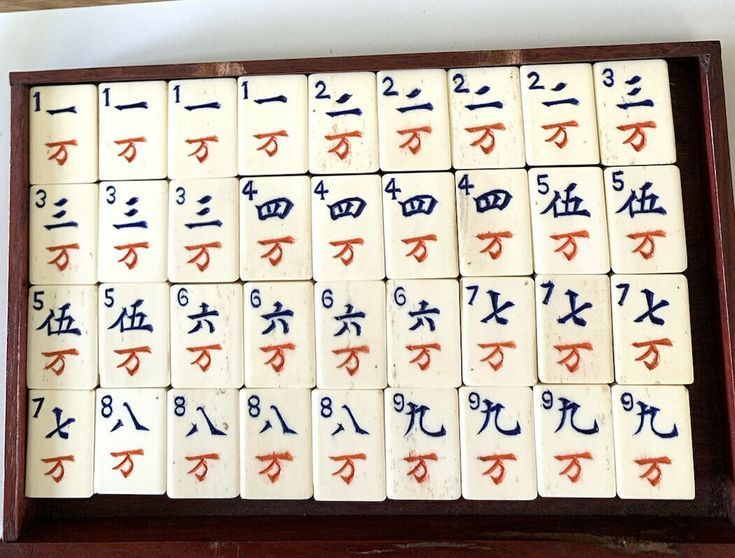 1 一 1 一 1 一 1 一 2 二 2 二 2 二 2 二 3 三
万 万 万 万 万 万 万 万 万
3 三 3 三 3 三 4 四 4 四 4 四 4 四 5 伍 5 伍
万 万 万 万 万 万 万 万 万
5 伍 5 伍 6 六 6 六 6 六 6 六 7 七 7 七 7 七
万 万 万 万 万 万 万 万 万
7 七 8 八 8 八 8 八 8 八 9 九 9 九 9 九 9 九
万 万 万 万 万 万 万 万 万